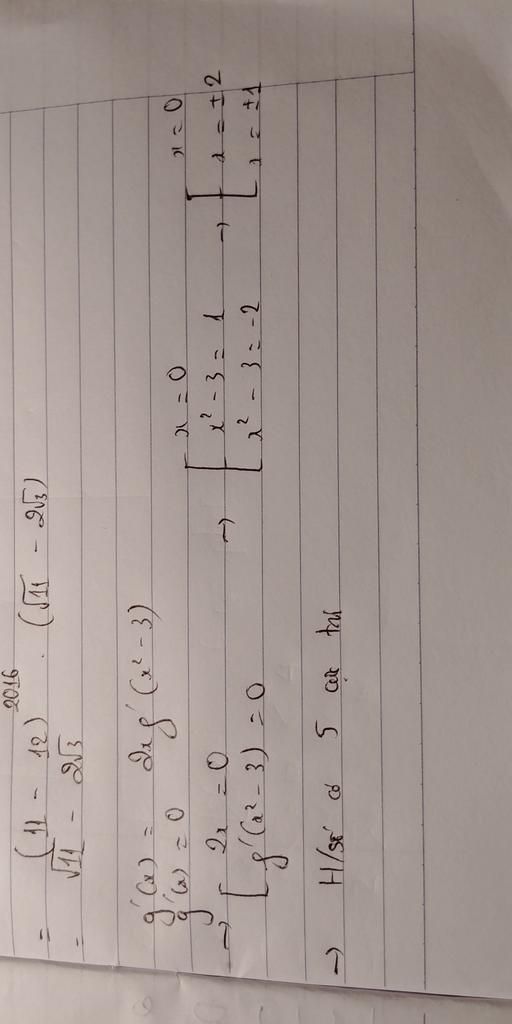 = (11 - 12)²⁰¹⁶ . (√11 - 2√3)
= √11 - 2√3
g'(x) = 2x f'(x² - 3)
g'(x) = 0
→ [ 2x = 0 → [ x = 0 → [ x = 0
f'(x² - 3) = 0 x² - 3 = 1 x = ± 2
x² - 3 = -2 x = ±1
→ H/số có 5 cực trị